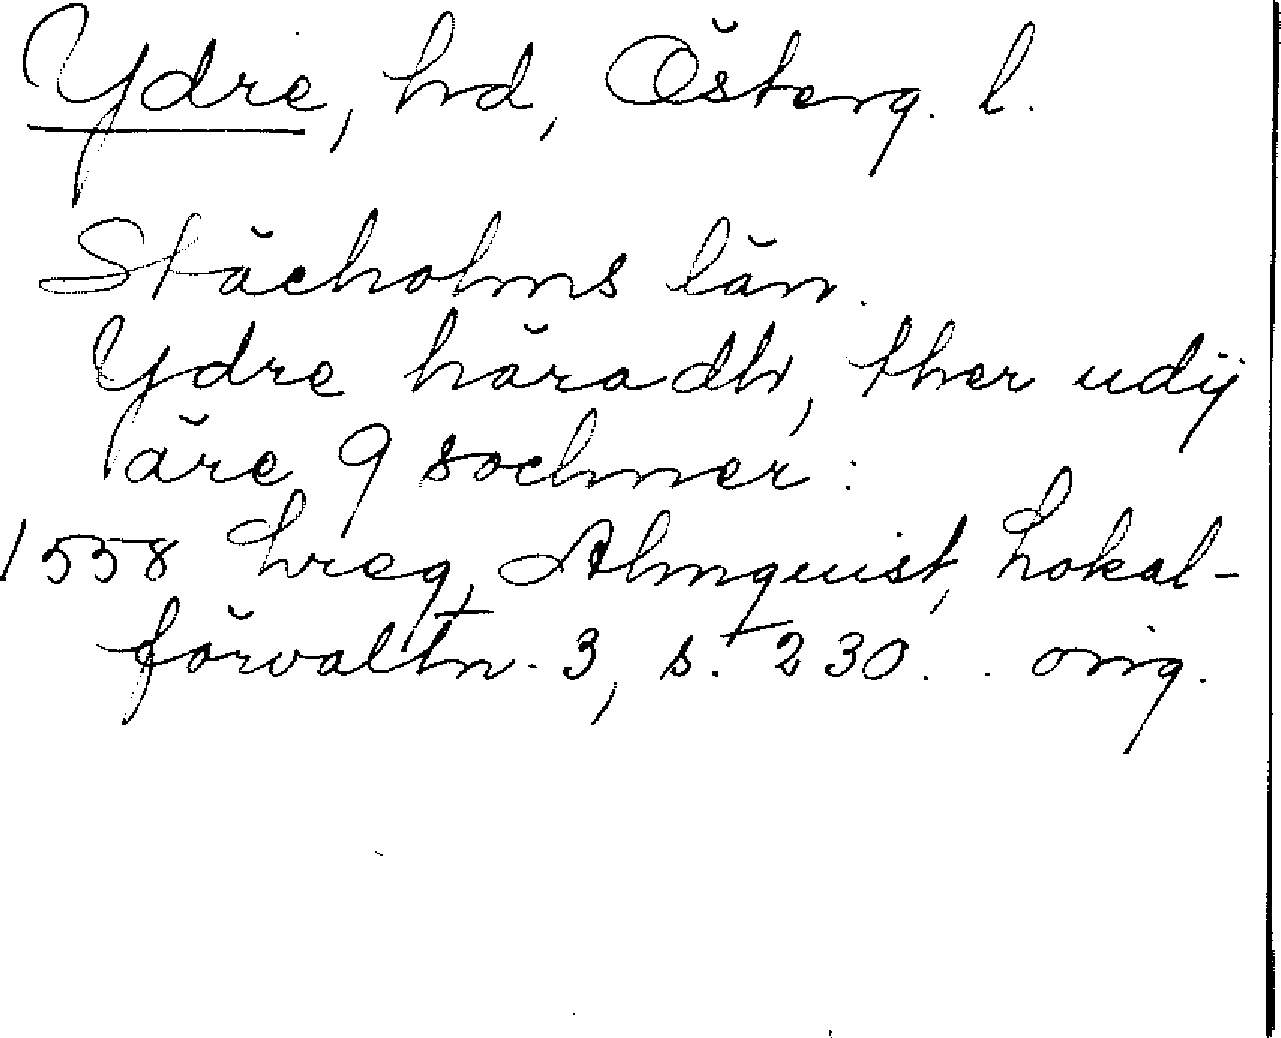 Ydre, hd, Österg. l.
Stächolms län.
Ydre häradh, ther udÿ
äre 9 sochner:
1558 Lreg, Almquist, Lokal-
förvaltn. 3, s. 230. . orig.